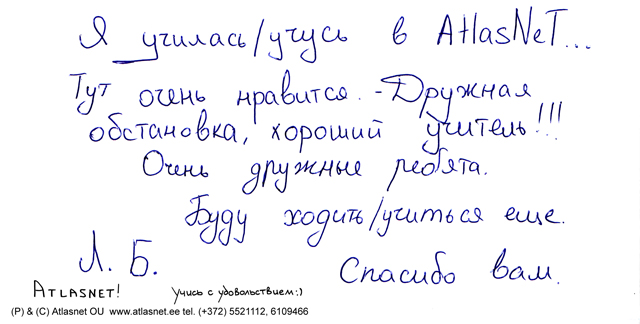 Я училась/учусь в AtlasNeT...
Тут очень нравится. - Дружная
обстановка, хороший учитель!!!
Очень дружные ребята.
Буду ходить/учиться еще.
Л. Б. Спасибо вам.
ATLASNET! Учись с удовольствием:)
(P) & (C) Atlasnet OU www.atlasnet.ee tel. (+372) 5521112, 6109466